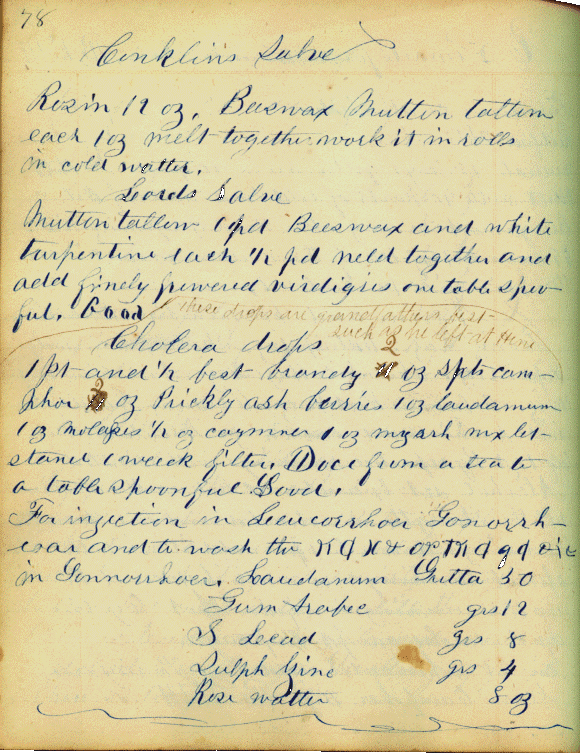 78
Conklin's Salve
Rozin 12 oz. Beeswax Mutton tallow
each 1 oz melt together work it in rolls
in cold watter.
Lords Salve
Mutton tallow 1 pd Beeswax and white
turpentine each 1/2 pd meld together and
add finely powered virdigris one table spoo-
ful. Good
these drops are grandfathers best
such as he left at Home
Cholera drops
1 pt and 1/2 best brandy 2 oz Spts cam-
phor 2 oz Prickly ash berries 1 oz laudamum
1 oz molases 1/2 oz cayenne 1 oz myrrh mx let
stand 1 week filter. Doce from a tea to
a table spoonful Good.
For injection in Leucorrhoea Gonorrh-
and to wash the
in Gonnorrhoea. Laudanum Gutta 30
Gum Arabic grs 12
S Lead grs 8
Sulph Zinc grs 4
Rose watter 8 oz